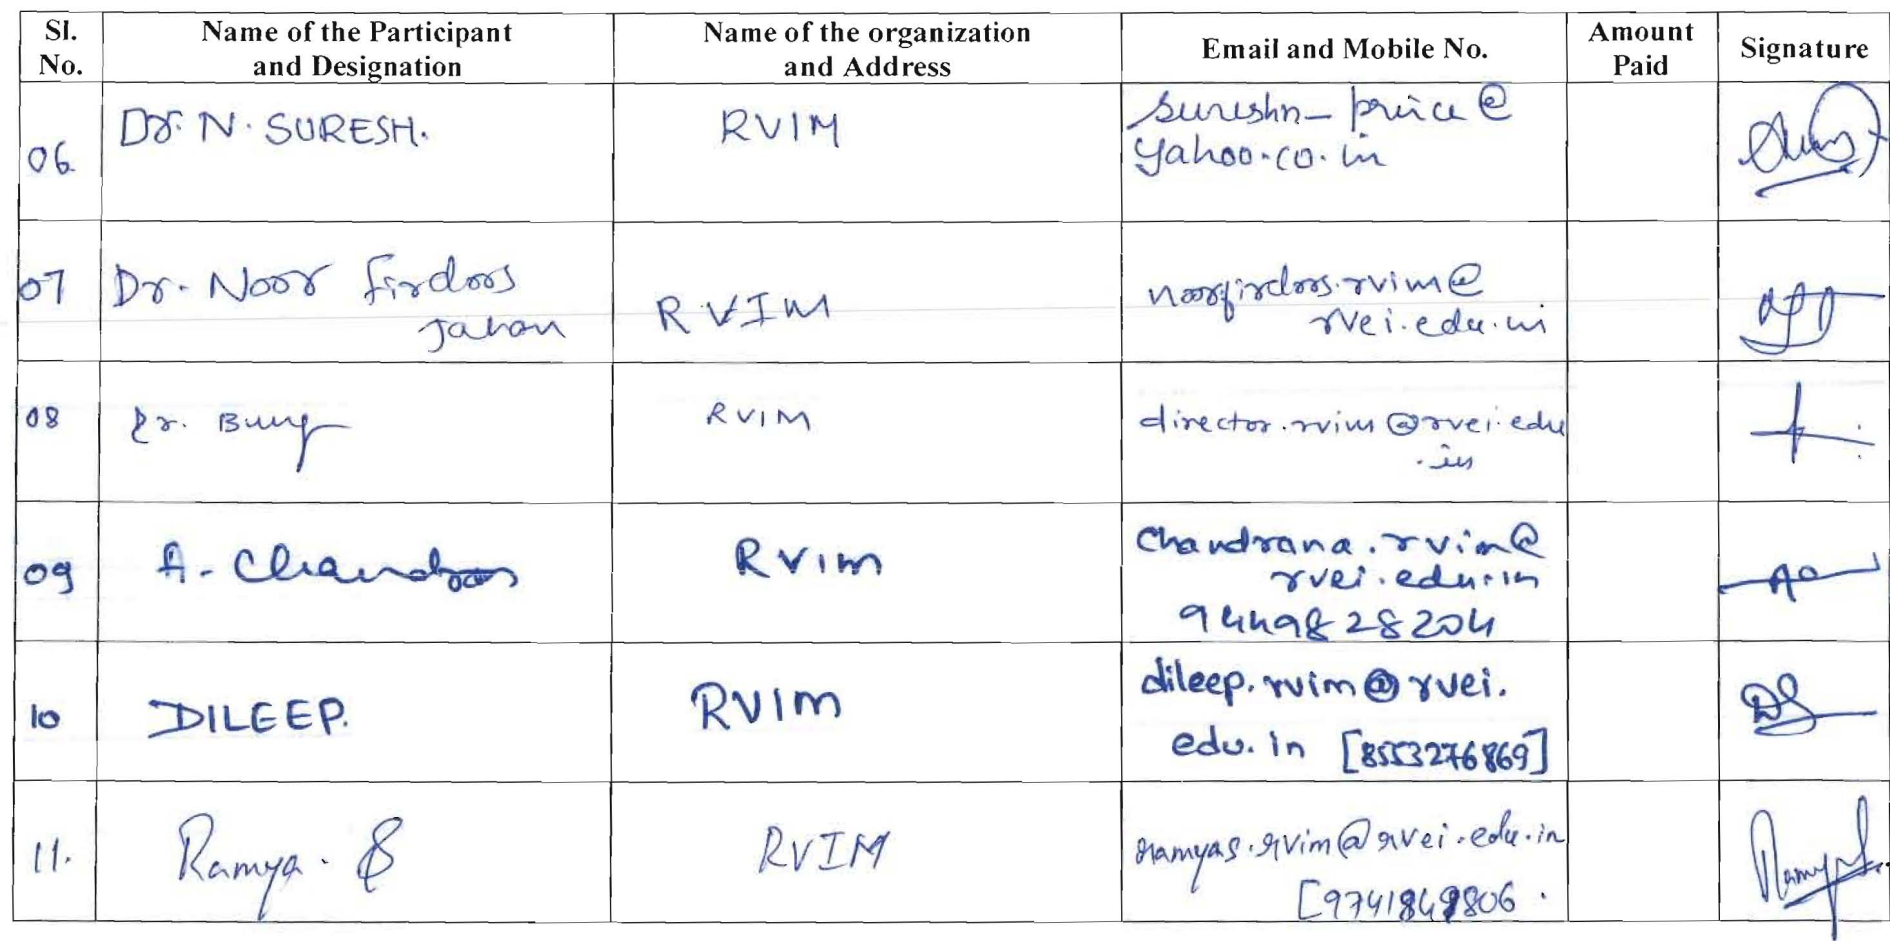 Sl. No.
Name of the Participant and Designation
Name of the organization and Address
Email and Mobile No.
Amount Paid
Signature
06
Dr. N. SURESH.
RVIM
sureshn_
yahoo.co.in
07
Dr. Noor Firdoos
Jahan
RVIM
noorfirdoos.rvim@
rvei.edu.in
08
RVIM
director.rvim@rvei.edu
.in
09
A. Chandran
RVIM
chandrana.rvim@
rvei.edu.in
9449828204
10
DILEEP.
RVIM
dileep.rvim@rvei.
edu.in [8553276869]
11.
Ramya. S
RVIM
ramyas.rvim@rvei.edu.in